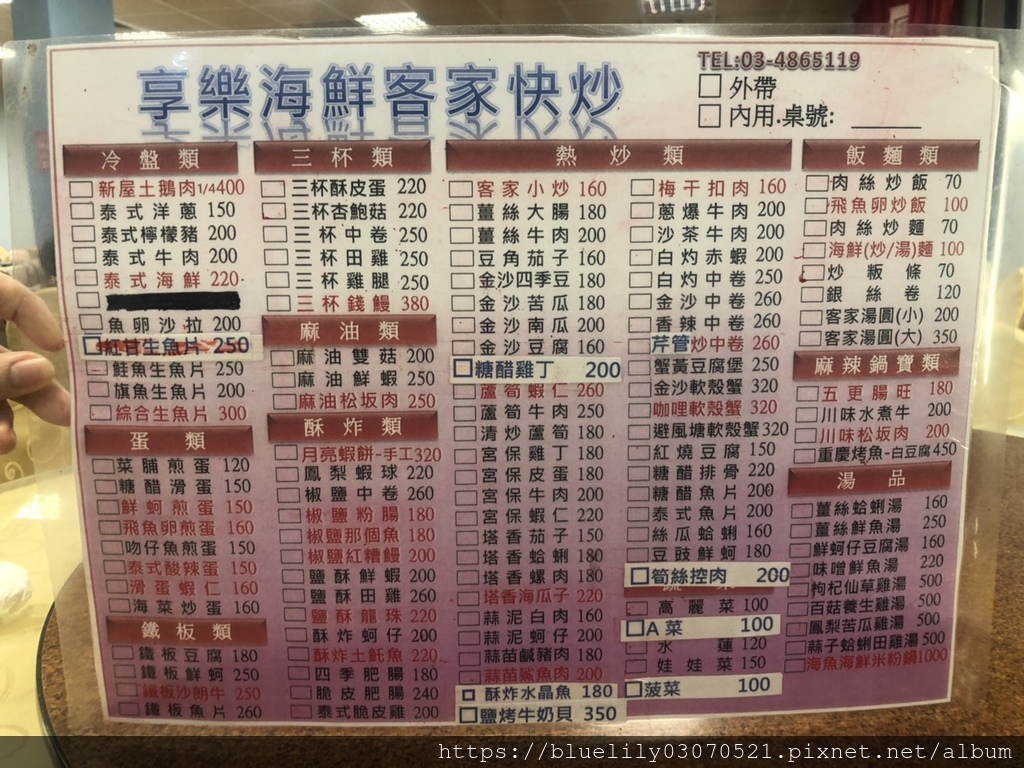 享樂海鮮客家快炒
TEL:03-4865119
外帶
內用.桌號:
冷盤類
新屋土鵝肉1/4400
泰式洋蔥 150
泰式檸檬豬 200
泰式牛肉 200
泰式海鮮 220
魚卵沙拉 200
紅甘生魚片 250
鮭魚生魚片 250
旗魚生魚片 200
綜合生魚片 300
蛋類
菜脯煎蛋 120
糖醋滑蛋 150
鮮蚵煎蛋 150
飛魚卵煎蛋 160
吻仔魚煎蛋 150
泰式酸辣蛋 150
滑蛋蝦仁 160
海菜炒蛋 160
鐵板類
鐵板豆腐 180
鐵板鮮蚵 250
鐵板沙朗牛 250
鐵板魚片 260
三杯類
三杯酥皮蛋 220
三杯杏鮑菇 220
三杯中卷 250
三杯田雞 250
三杯雞腿 250
三杯錢鰻 380
麻油類
麻油雙菇 200
麻油鮮蝦 250
麻油松坂肉 250
酥炸類
月亮蝦餅-手工320
鳳梨蝦球 220
椒鹽中卷 260
椒鹽粉腸 180
椒鹽那個魚 180
椒鹽紅糟鰻 200
鹽酥鮮蝦 200
鹽酥田雞 260
鹽酥龍珠 220
酥炸蚵仔 200
酥炸土魠魚 220
四季肥腸 180
脆皮肥腸 240
泰式脆皮雞 200
熱炒類
客家小炒 160
薑絲大腸 180
薑絲牛肉 200
豆角茄子 160
金沙四季豆 180
金沙苦瓜 180
金沙南瓜 200
金沙豆腐 160
糖醋雞丁 200
蘆筍蝦仁 260
蘆筍牛肉 250
清炒蘆筍 180
宮保雞丁 180
宮保皮蛋 180
宮保牛肉 200
宮保蝦仁 220
塔香茄子 150
塔香蛤蜊 180
塔香螺肉 180
塔香海瓜子 220
蒜泥白肉 160
蒜泥蚵仔 200
蒜苗鹹豬肉 180
蒜苗鯊魚肉 200
酥炸水晶魚 180
鹽烤牛奶貝 350
梅干扣肉 160
蔥爆牛肉 200
沙茶牛肉 200
白灼赤蝦 200
白灼中卷 250
金沙中卷 260
香辣中卷 260
芹管炒中卷 260
蟹黃豆腐堡 250
金沙軟殼蟹 320
咖哩軟殼蟹 320
避風塘軟殼蟹 320
紅燒豆腐 150
糖醋排骨 220
糖醋魚片 200
泰式魚片 200
絲瓜蛤蜊 160
豆豉鮮蚵 180
筍絲控肉 200
高麗菜 100
A菜 100
水蓮 120
娃娃菜 150
菠菜 100
飯麵類
肉絲炒飯 70
飛魚卵炒飯 100
肉絲炒麵 70
海鮮(炒/湯)麵 100
炒粄條 70
銀絲卷 120
客家湯圓(小) 200
客家湯圓(大) 350
麻辣鍋寶類
五更腸旺 180
川味水煮牛 200
川味松坂肉 200
重慶烤魚-白豆腐450
湯品
薑絲蛤蜊湯 160
薑絲鮮魚湯 250
鮮蚵仔豆腐湯 160
味噌鮮魚湯 220
枸杞仙草雞湯 500
百菇養生雞湯 500
鳳梨苦瓜雞湯 500
蒜子蛤蜊田雞湯 500
海魚海鮮米粉鍋1000
https://bluelily03070521.pixnet.net/album